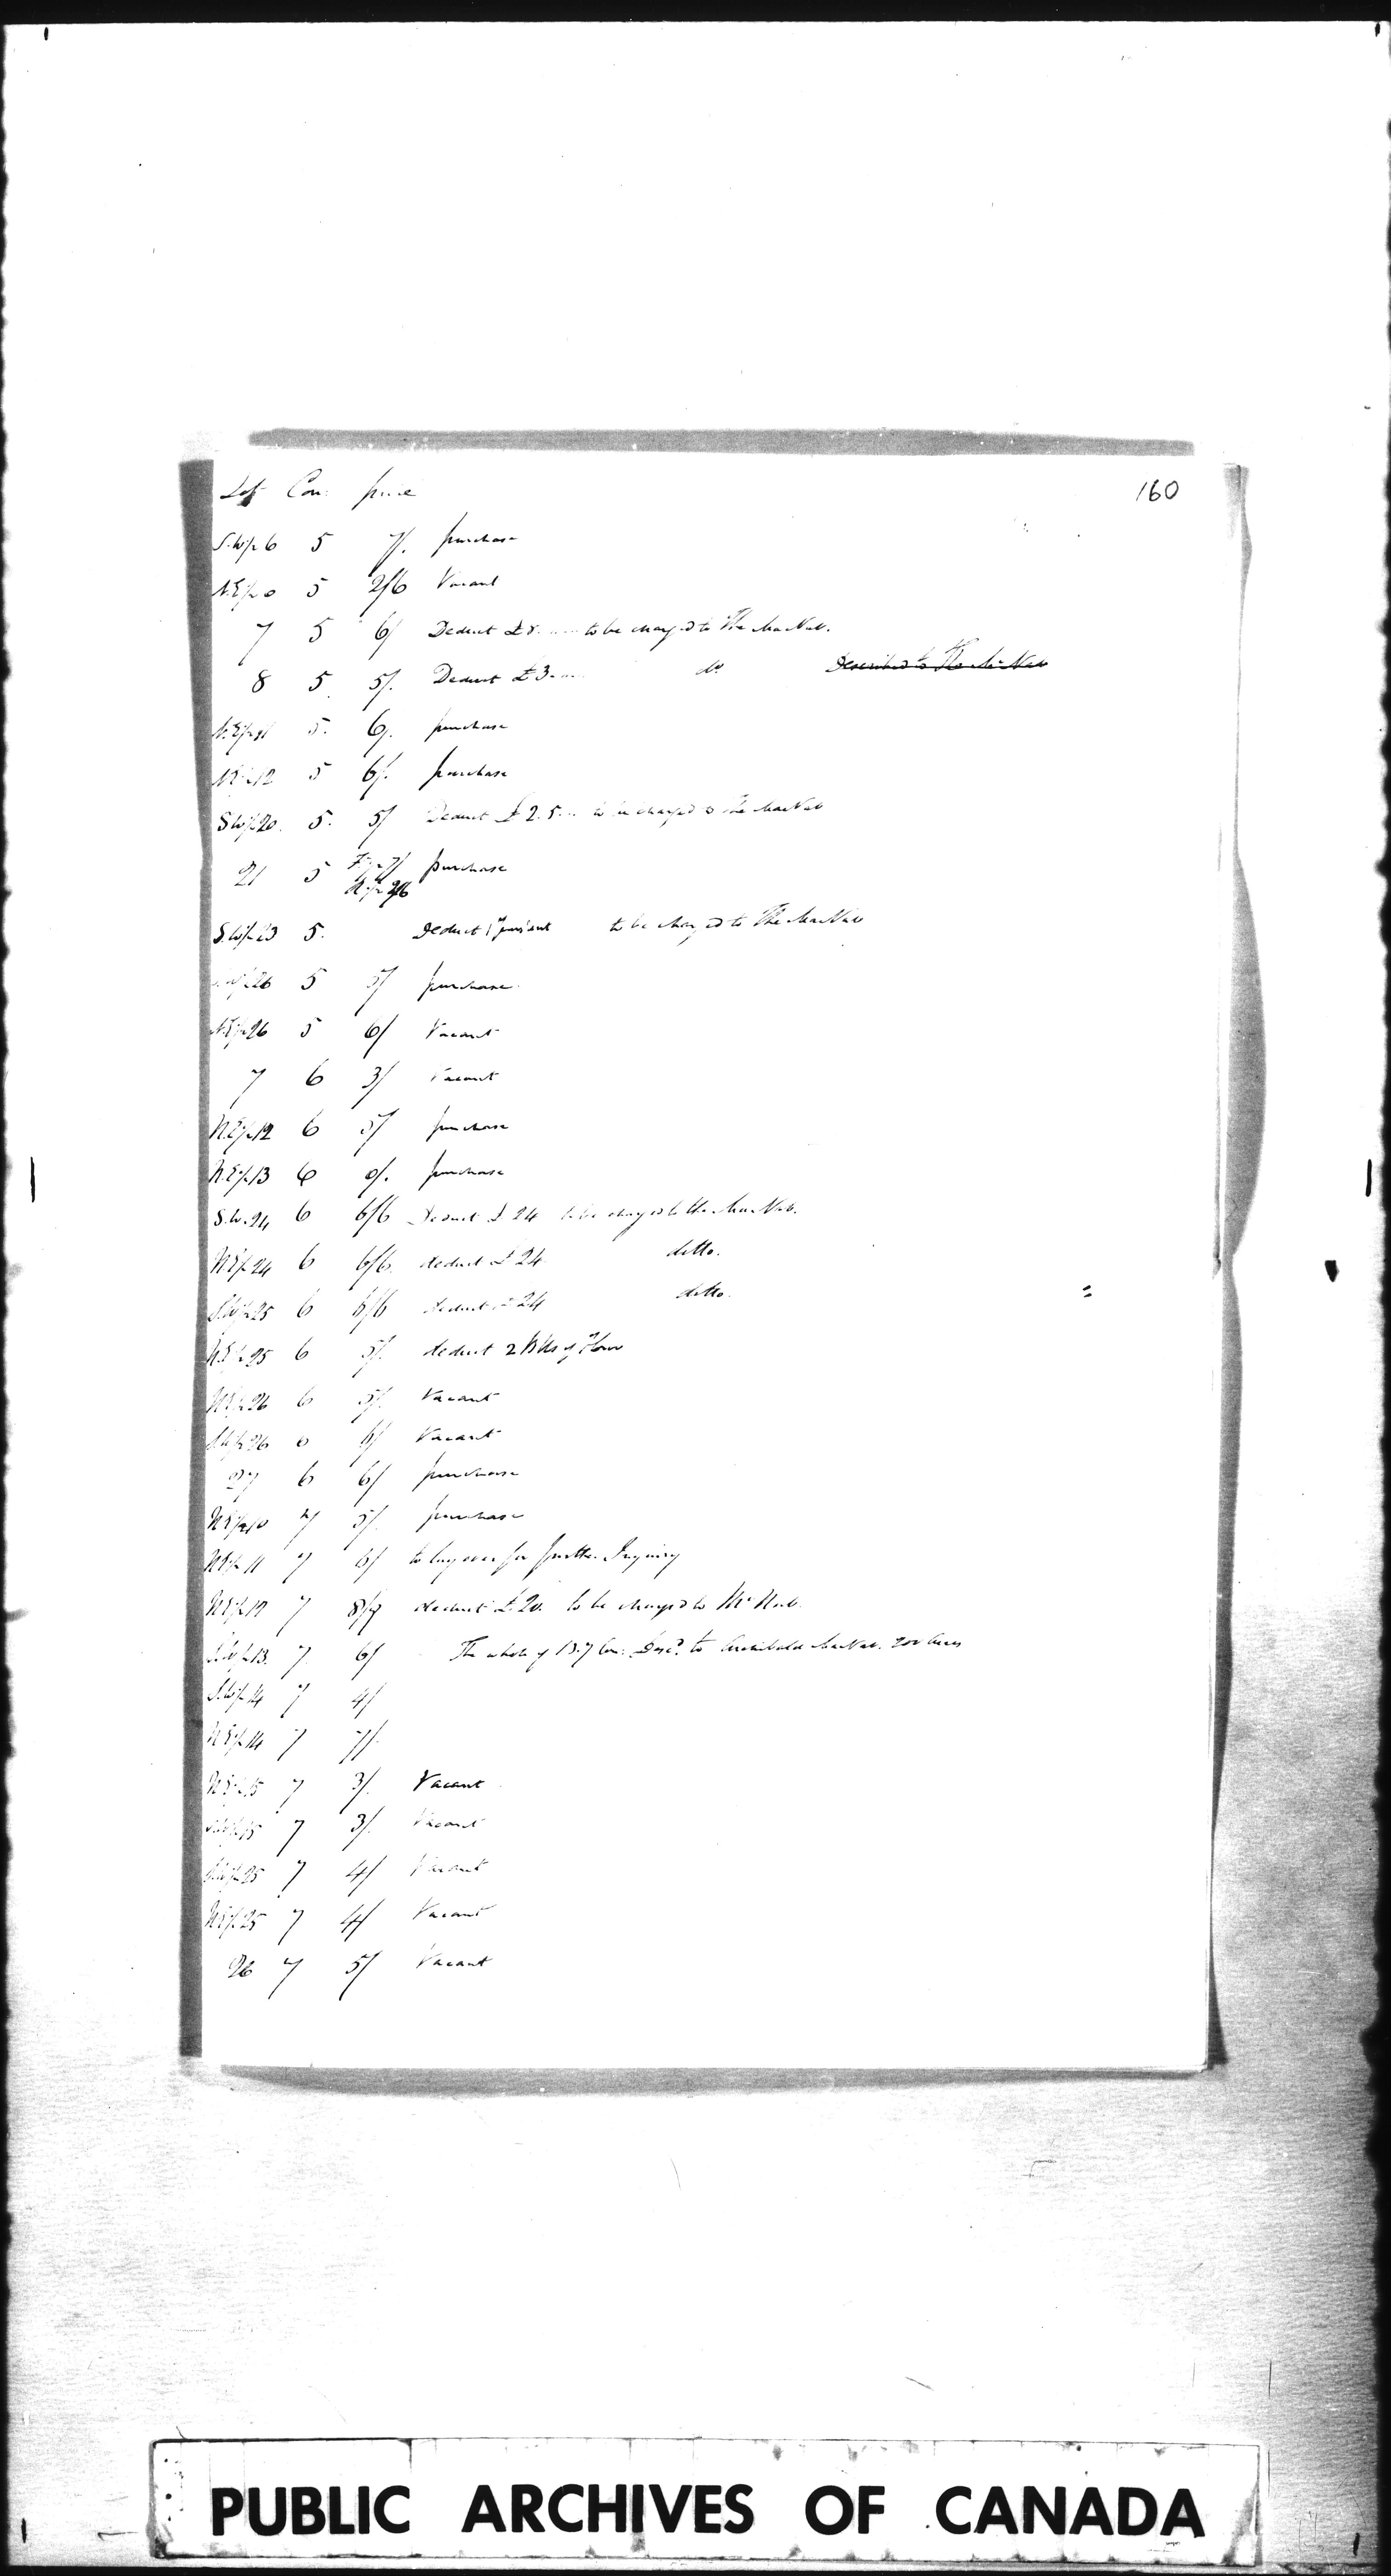 Lot Con: price 160
S.W½ 6 5 7/. purchase
N.E½ 6 5 2/6 Vacant
7 5 6/ Deduct £ to be charged to The MacNab.
8 5 5/. Deduct £3 do. Described to The McNab
N.E½ 11 5. 6/. purchase
N.E½ 12 5 6/. purchase
S.W½ 20. 5. 5/ Deduct £2.5 to be charged to The MacNab
21 5 7/ purchase
2/6
S.W½ 23 5. Deduct to be charged to The MacNab
26 5 5/ purchase.
N.E½ 26 5 6/ Vacant
7 6 3/ Vacant
N.E½ 12 6 5/ purchase
N.E½ 13 6 purchase
S.W. 24 6 6/6 Deduct £24 to be charged to the MacNab.
N.E½ 24 6 6/6. deduct £24 ditto.
S.W½ 25 6 6/6 deduct £24 ditto.
N.E½ 25 6 5/. deduct 2 Bbls of Flour
N.E½ 26 6 5/. Vacant
S.W½ 26 6 6/ Vacant
27 6 6/ purchase
N.E½ 10 7 5/. purchase
N.E½ 11 7 6/ to lay over for further Inquiry
N.E½ 12 7 deduct £20. to be charged to McNab.
S.W½ 13. 7. 6/ The whole of 13.7 Con: Desc.d to Archibald MacNab. 200 Acres
S.W½ 14 7 4/
N.E½ 14 7 7/.
N.E½ 15 7 3/. Vacant
S.W½ 15 7 3/. Vacant
S.W½ 25 7 4/ Vacant
N.E½ 25 7 4/ Vacant
26 7 5/ Vacant
PUBLIC ARCHIVES OF CANADA